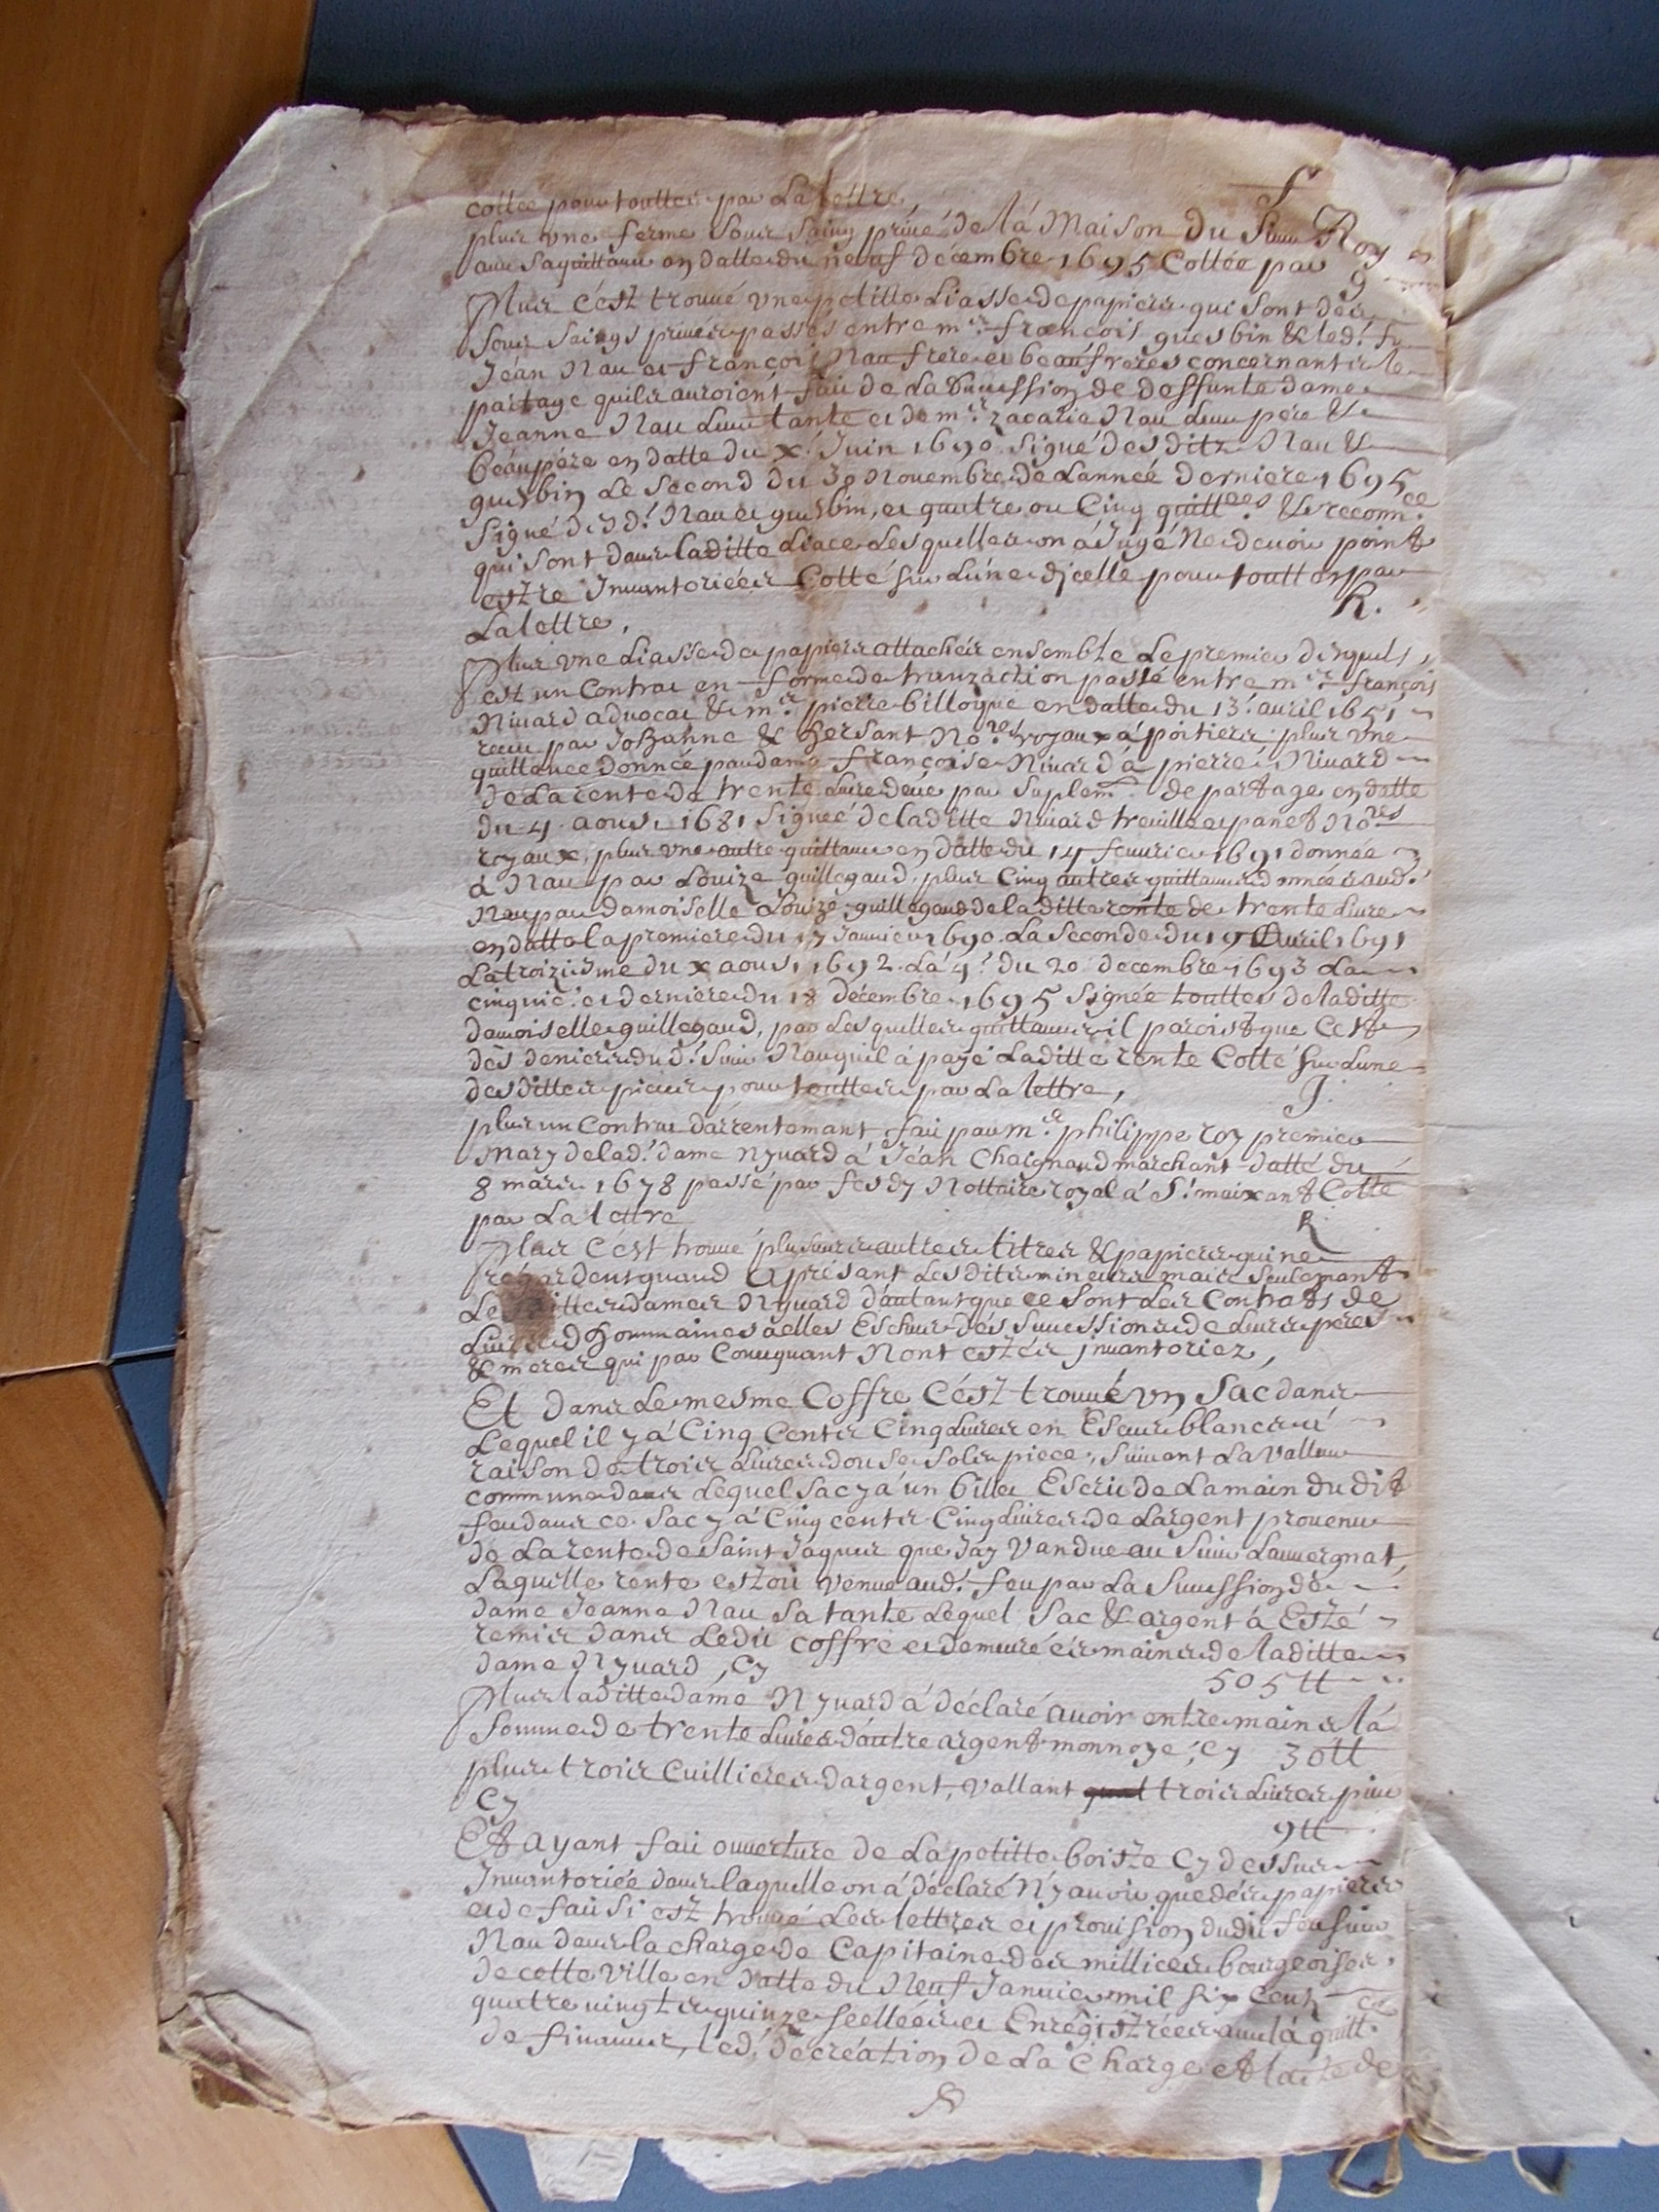 cottee pour touttes par La lettre, f
plus une ferme sous saing privé de la Maison du sieur Roy et
avec sa quittance en datte du neuf décembre 1695 Cottée par g
Plus c'est trouvé une petitte Liasse de papiers qui sont des
sous seings privés passés entre mre françois guesbin & led. feu
Jéan Nau et françois Nau frere et beaufreres concernant le
partage quils auroient fait de La succession de deffunte dame
Jeanne Nau Leur tante et de mre zacarie Nau Leur pére &
beaupére en datte du x. Juin 1690. Signé desditz Nau &
guesbin Le Second du 30 Novembre de Lannée derniere 1695
Signé desd. Nau et guesbin, et quatre ou Cinq quittces & reconnce
qui sont dans laditte Liace Lesquelles on a Jugé Ne devoir point
estre Inventoriées Cotté sur Lune dicelle pour touttes par
La lettre, R.
Plus une Liasse de papiers attachés ensemble Le premier desquels
est un Contrat en forme de tranzaction passé entre mre françois
Nivard advocat & mre pierre billoque en datte du 13. avril 1651
receu par Johanne & hersant Nores royaux a poitiers plus une
quittance donnée par dame françoise Nivard a pierre Nivard
de La rente de trente Livre deüe par suplemt de partage en datte
du 4 aoust 1681 Signée de laditte Nivard treuille et panet Nores
royaux, plus une autre quittance en datte du 14 feuvrier 1691 donnée
à Nau par Louize guillegaud, plus Cinq autres quittances données aud.
Nau par damoiselle Louize guillegaud de laditte rente de trente Livre
en datte la premiere du 17 Janvier 1690. La Seconde du 19 Avril 1691
La troiziesme du x aoust 1692. La 4e du 20 decembre 1693 La
cinquie. et derniere du 18 décembre 1695 Signée touttes de laditte
damoiselle guillegaud, par Lesquelles quittances il paroist que Cest
des deniers dud. sieur Nau quil a payé Laditte rente Cotté sur Lune
des dittes pieces pour touttes par La lettre, J.
plus un Contrat darrentemant fait par mre philippe roy premier
mary de lad. dame nyvard a Jéan Chaignaud marchant datté du
8 mars 1678 passé par fesdy Nottaire royal a St maixant Cotté
par La lettre R
Plus C'est trouvé plusieurs autres titres & papiers qui ne
regardent quand a présant Lesdits mineurs mais Seulemant
Lesdittes dames Nyvard d'autant que ce sont Les Contrats de
Leurs dhommaines a elles Escheus des successions de Leurs peres
& meres qui par Consequant Nont estés jnvantoriez,
Et dans Le mesme Coffre C'ést trouvé un Sac dans
Lequel il y a Cinq Cents Cinq Livres en Escus blancs a
raison de trois Livres douse sols piece, suivant La valleur
commune dans Lequel sac y a un billet Escrit de La main du dit
feu dans ce Sac y a Cinq cents Cinq Livres de Largent provenu
de La rente de Saint Jaques que Jay vandue au sieur Lauvergnat,
Laquelle rente estoit venue aud. feu par La succession de
dame Jeanne Nau sa tante Lequel Sac & argent a Esté
remis dans Ledit coffre et demeuré és mains de laditte
dame Nyvard, Cy 505 tt
Plus laditte dame Nyvard a déclaré avoir entre mains la
Somme de trente Livres d'autre argent monnoyé, Cy 30 tt
plus trois Cuillieres dargent, vallant quat trois Livres piece
Cy 9 tt
Et ayant fait ouverture de La petitte boiste Cy dessus
Inventoriée dans laquelle on a déclaré N'y avoir que des papiers
et de fait si est trouvé Les lettres et provision dudit feu sieur
Nau dans la charge de Capitaine des millices bourgeoises
de cette ville en datte du Neuf Janvier mil six Cent
quatre vingts quinze scellées et Enregistrées avec la quittce
de finances, led. de création de La Charge et la